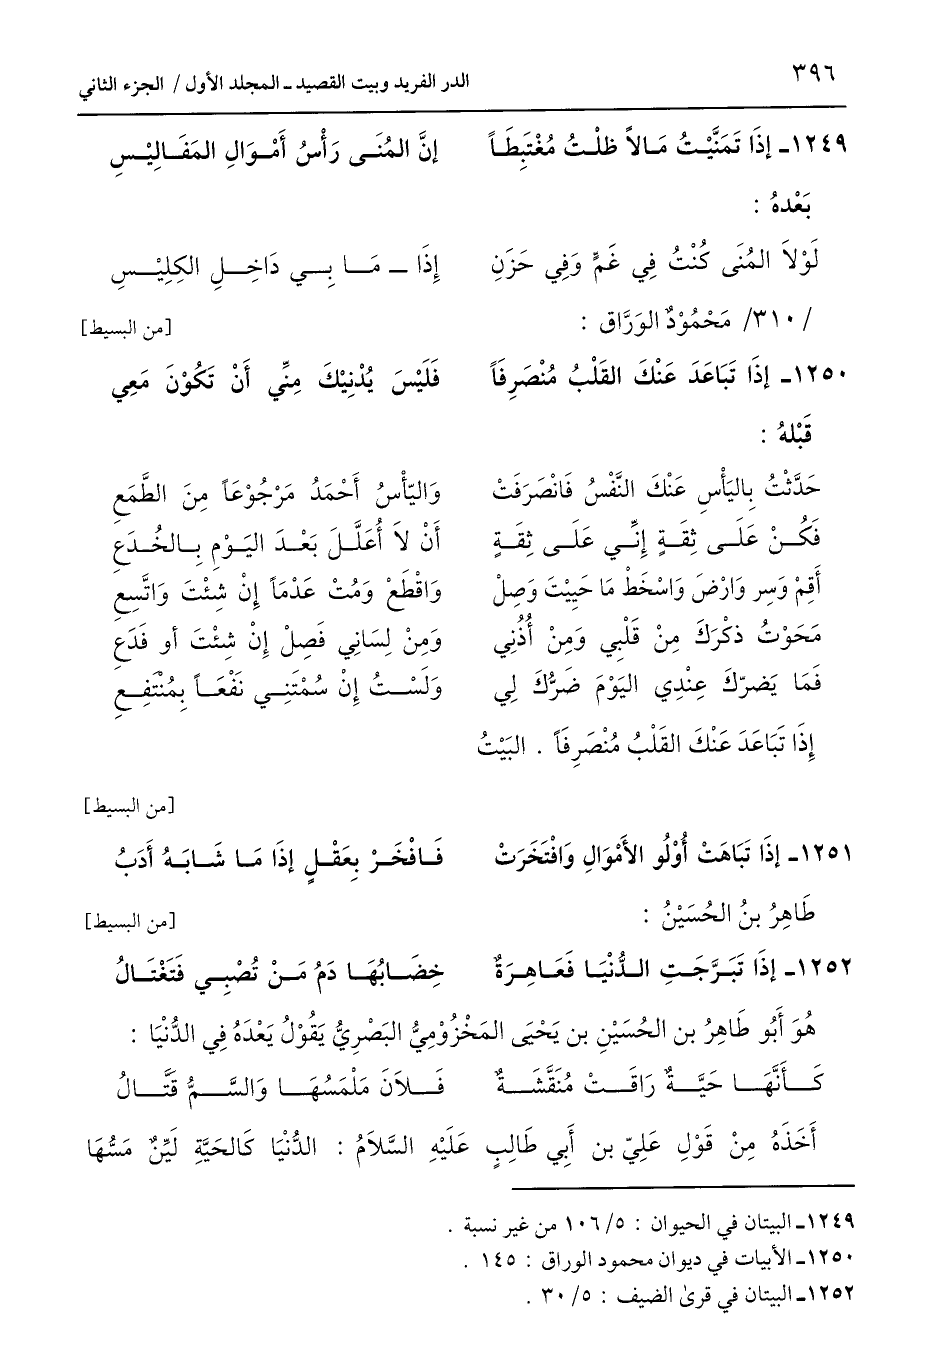 ٣٩٦ الدر الفريد وبيت القصيد ـ المجلد الأول / الجزء الثاني
١٢٤٩ـ إذَا تَمَنَّيْتُ مَالاً ظلْتُ مُغْتَبِطَاً إنَّ المُنَى رَأْسُ أَمْوَالِ المَفَالِيْسِ
بَعْدهُ :
لَوْلاَ المُنَى كُنْتُ فِي غَمٍّ وَفِي حَزَنِ إِذَا ـ مَا بِي دَاخِلِ الكِلِيْسِ
/٣١٠/ مَحْمُوْدٌ الوَرَّاق : [من البسيط]
١٢٥٠ـ إذَا تَبَاعَدَ عَنْكَ القَلْبُ مُنْصَرِفَاً فَلَيْسَ يُدْنِيْكَ مِنِّي أَنْ تَكُوْنَ مَعِي
قَبْلهُ :
حَدَّثْتُ بِاليَأْسِ عَنْكَ النَّفْسُ فَانْصَرَفَتْ وَاليَأْسُ أَحْمَدُ مَرْجُوْعَاً مِنَ الطَّمَعِ
فَكُنْ عَلَى ثِقَةٍ إِنِّي عَلَى ثِقَةٍ أَنْ لاَ أُعَلَّلَ بَعْدَ اليَوْمِ بِالخُدَعِ
أَقِمْ وَسِر وَارْضَ وَاسْخَطْ مَا حَيِيْتَ وَصِلْ وَاقْطَعْ وَمُتْ عَدْمَاً إِنْ شِئْتَ وَاتَّسِعِ
مَحَوْتُ ذكْرَكَ مِنْ قَلْبِي وَمِنْ أُذُنِي وَمِنْ لِسَانِي فَصِلْ إِنْ شِئْتَ أو فَدَعِ
فَمَا يَضرّكَ عِنْدِي اليَوْمَ ضَرُّكَ لِي وَلَسْتُ إِنْ سُمْتَنِي نَفْعَاً بِمُنْتَفِعِ
إِذَا تَبَاعَدَ عَنْكَ القَلْبُ مُنْصَرِفَاً . البَيْتُ
[من البسيط]
١٢٥١ـ إذَا تَبَاهَتْ أُوْلُو الأَمْوَالِ وَافْتَخَرَتْ فَافْخَرْ بِعَقْلٍ إذَا مَا شَابَهُ أَدَبُ
طَاهِرُ بنُ الحُسَيْنُ : [من البسيط]
١٢٥٢ـ إذَا تَبَرَّجَتِ الدُّنْيَا فَعَاهِرَةٌ خِضَابُهَا دَمُ مَنْ تُصْبِي فَتَغْتَالُ
هُوَ أَبُو طَاهِرُ بن الحُسَيْنِ بن يَحْيَى المَخْزُوْمِيُّ البَصْرِيُّ يَقُوْلُ بَعْدَهُ فِي الدُّنْيَا :
كَأَنَّهَا حَيَّةٌ رَاقَتْ مُنَقَّشَةٌ فَلاَنَ مَلْمَسُهَا وَالسَّمُّ قَتَّالُ
أَخَذَهُ مِنْ قَوْلِ عَلِيّ بن أَبِي طَالِبٍ عَلَيْهِ السَّلاَمُ : الدُّنْيَا كَالحَيَّةِ لَيِّنٌ مَسُّهَا
١٢٤٩ـ البيتان في الحيوان : ٥/ ١٠٦ من غير نسبة .
١٢٥٠ـ الأبيات في ديوان محمود الوراق : ١٤٥ .
١٢٥٢ـ البيتان في قرى الضيف : ٥/ ٣٠ .